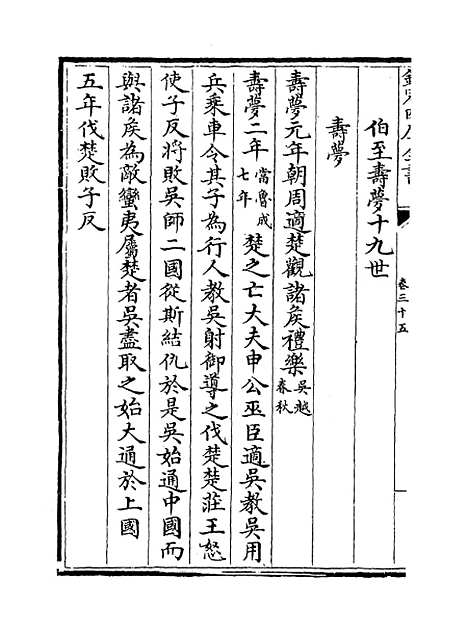 欽定四庫全書
卷三十五
伯至壽夢十九世
壽夢
壽夢元年朝周適楚觀諸侯禮樂吳越春秋
壽夢二年當魯成七年楚之亡大夫申公巫臣適吳教吳用
兵乘車令其子為行人教吳射御導之伐楚楚莊王怒
使子反將敗吳師二國從斯結仇於是吳始通中國而
與諸侯為敵蠻夷屬楚者吳盡取之始大通於上國
五年伐楚敗子反